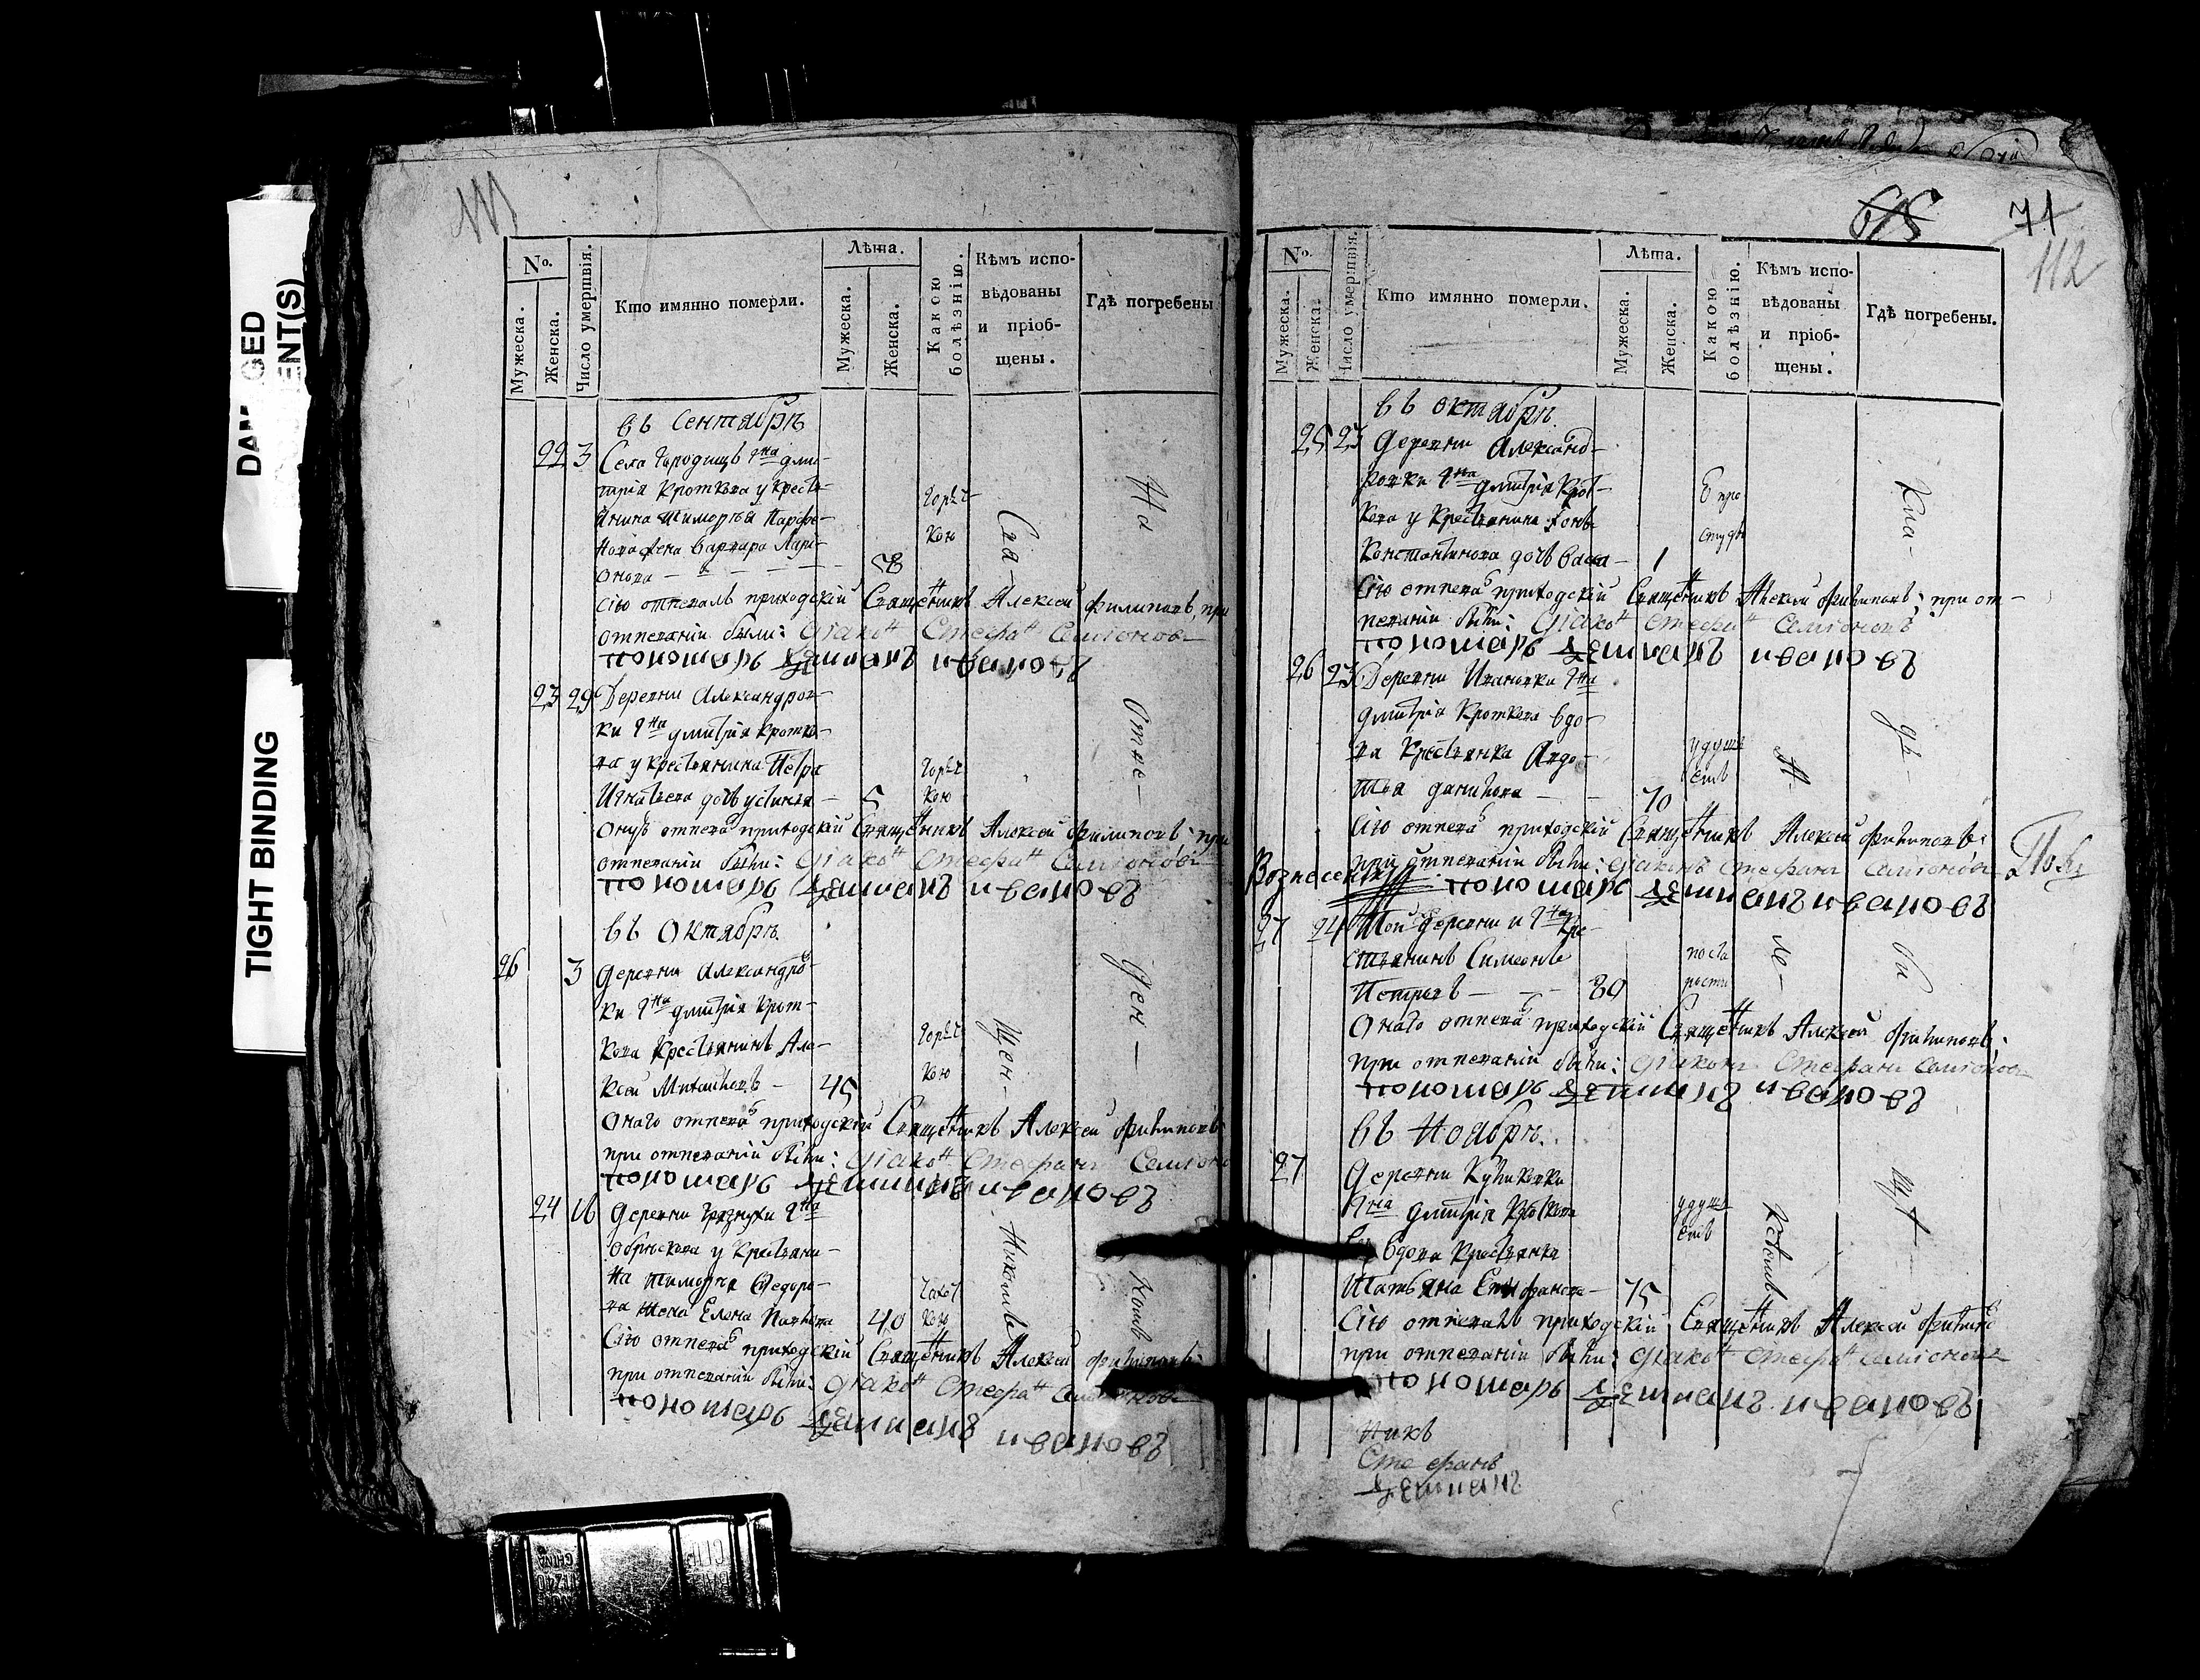 DAMAGED
ENT(S)
TIGHT BINDING
111
№.
Мужеска.
Женска.
Число умертвія.
Кто имянно померли.
Лѣта.
Мужеска.
Женска.
Какою болѣзнію.
Кѣмъ испо-
вѣдованы
и пріоб-
щены.
Гдѣ погребены
въ Сентябрѣ
22 3 Села Городищъ Гна Дми-
трія Кроткова у крестья-
янина Тимофея Парфе-
нова жена Варвара Лари-
онова 58
Горяч
кою
Сію отпевалъ приходскій Священникъ Алексей Филиповъ, при
отпеваніи были: Діаконъ Стефанъ Семіоновъ
пономарь Ивановъ
23 29 Деревни Александров-
ки Гна Дмитрія Кротко-
ва у крестьянина Петра
Игнатьева дочь Устинья 5
Горяч
кою
Оную отпевалъ приходскій Священникъ Алексей Филиповъ; при
отпеваніи были: Діаконъ Стефанъ Семіоновъ
пономарь Ивановъ
въ Октябрѣ
26 3 Деревни Александров-
ки Гна Дмитрія Крот-
кова крестьянинъ Але-
ксей Михайловъ 45
Горяч
кою
Онаго отпевалъ приходскій Священникъ Алексей Филиповъ;
при отпеваніи были: Діаконъ Стефанъ Семіоно
пономарь Ивановъ
24 16 Деревни Грязнухи Гна
Обрѣскова у крестьяни-
на Тимофея Федоро-
ва жена Елена Павлова 40
Чахот
кою
Сію отпевалъ приходскій Священникъ Алексей Филиповъ
при отпеваніи были: Діаконъ Стефанъ Семіоновъ
пономарь Ивановъ
Свя-
щен-
никомъ
На
Отве-
ден-
номъ
65
71
112
№.
Мужеска.
Женска.
Число умертвія.
Кто имянно померли.
Лѣта.
Мужеска.
Женска.
Какою болѣзнію.
Кѣмъ испо-
вѣдованы
и пріоб-
щены.
Гдѣ погребены.
въ Октябрѣ
25 23 Деревни Александ-
ровки Гна Дмитрія Крот-
кова у крестьянина
Константинова дочь 1
простуды
Сію отпевалъ приходскій Священникъ Алексей Филиповъ; при от-
певаніи были: Діаконъ Стефанъ Семіоновъ
пономарь Ивановъ
26 23 Деревни Ивановки Гна
Дмитрія Кроткова вдо-
ва крестьянка Авдо-
тья Данилова 70
удуш
емъ
Сію отпевалъ приходскій Священникъ Алексей Филиповъ;
при отпеваніи были: Діаконъ Стефанъ Семіоновъ
Вознесенску
пономарь Ивановъ
27 24 Той деревни и Гна кре-
стьянинъ Симеонъ
Петровъ 89
по ста
рости
Онаго отпевалъ приходскій Священникъ Алексей Филиповъ;
при отпеваніи были: Діаконъ Стефанъ Семіоновъ
пономарь Ивановъ
въ Ноябрѣ.
27 Деревни Куликовки
Гна Дмитрія Кроткова
вдова крестьянка
Татьяна 75
удуш
емъ
Сію отпевалъ приходскій Священникъ Алексей Филипо
при отпеваніи были: Діаконъ Стефанъ Семіоновъ
пономарь Ивановъ
А-
ле-
Кла-
дь-
би
щѣ
никъ
Стефанъ